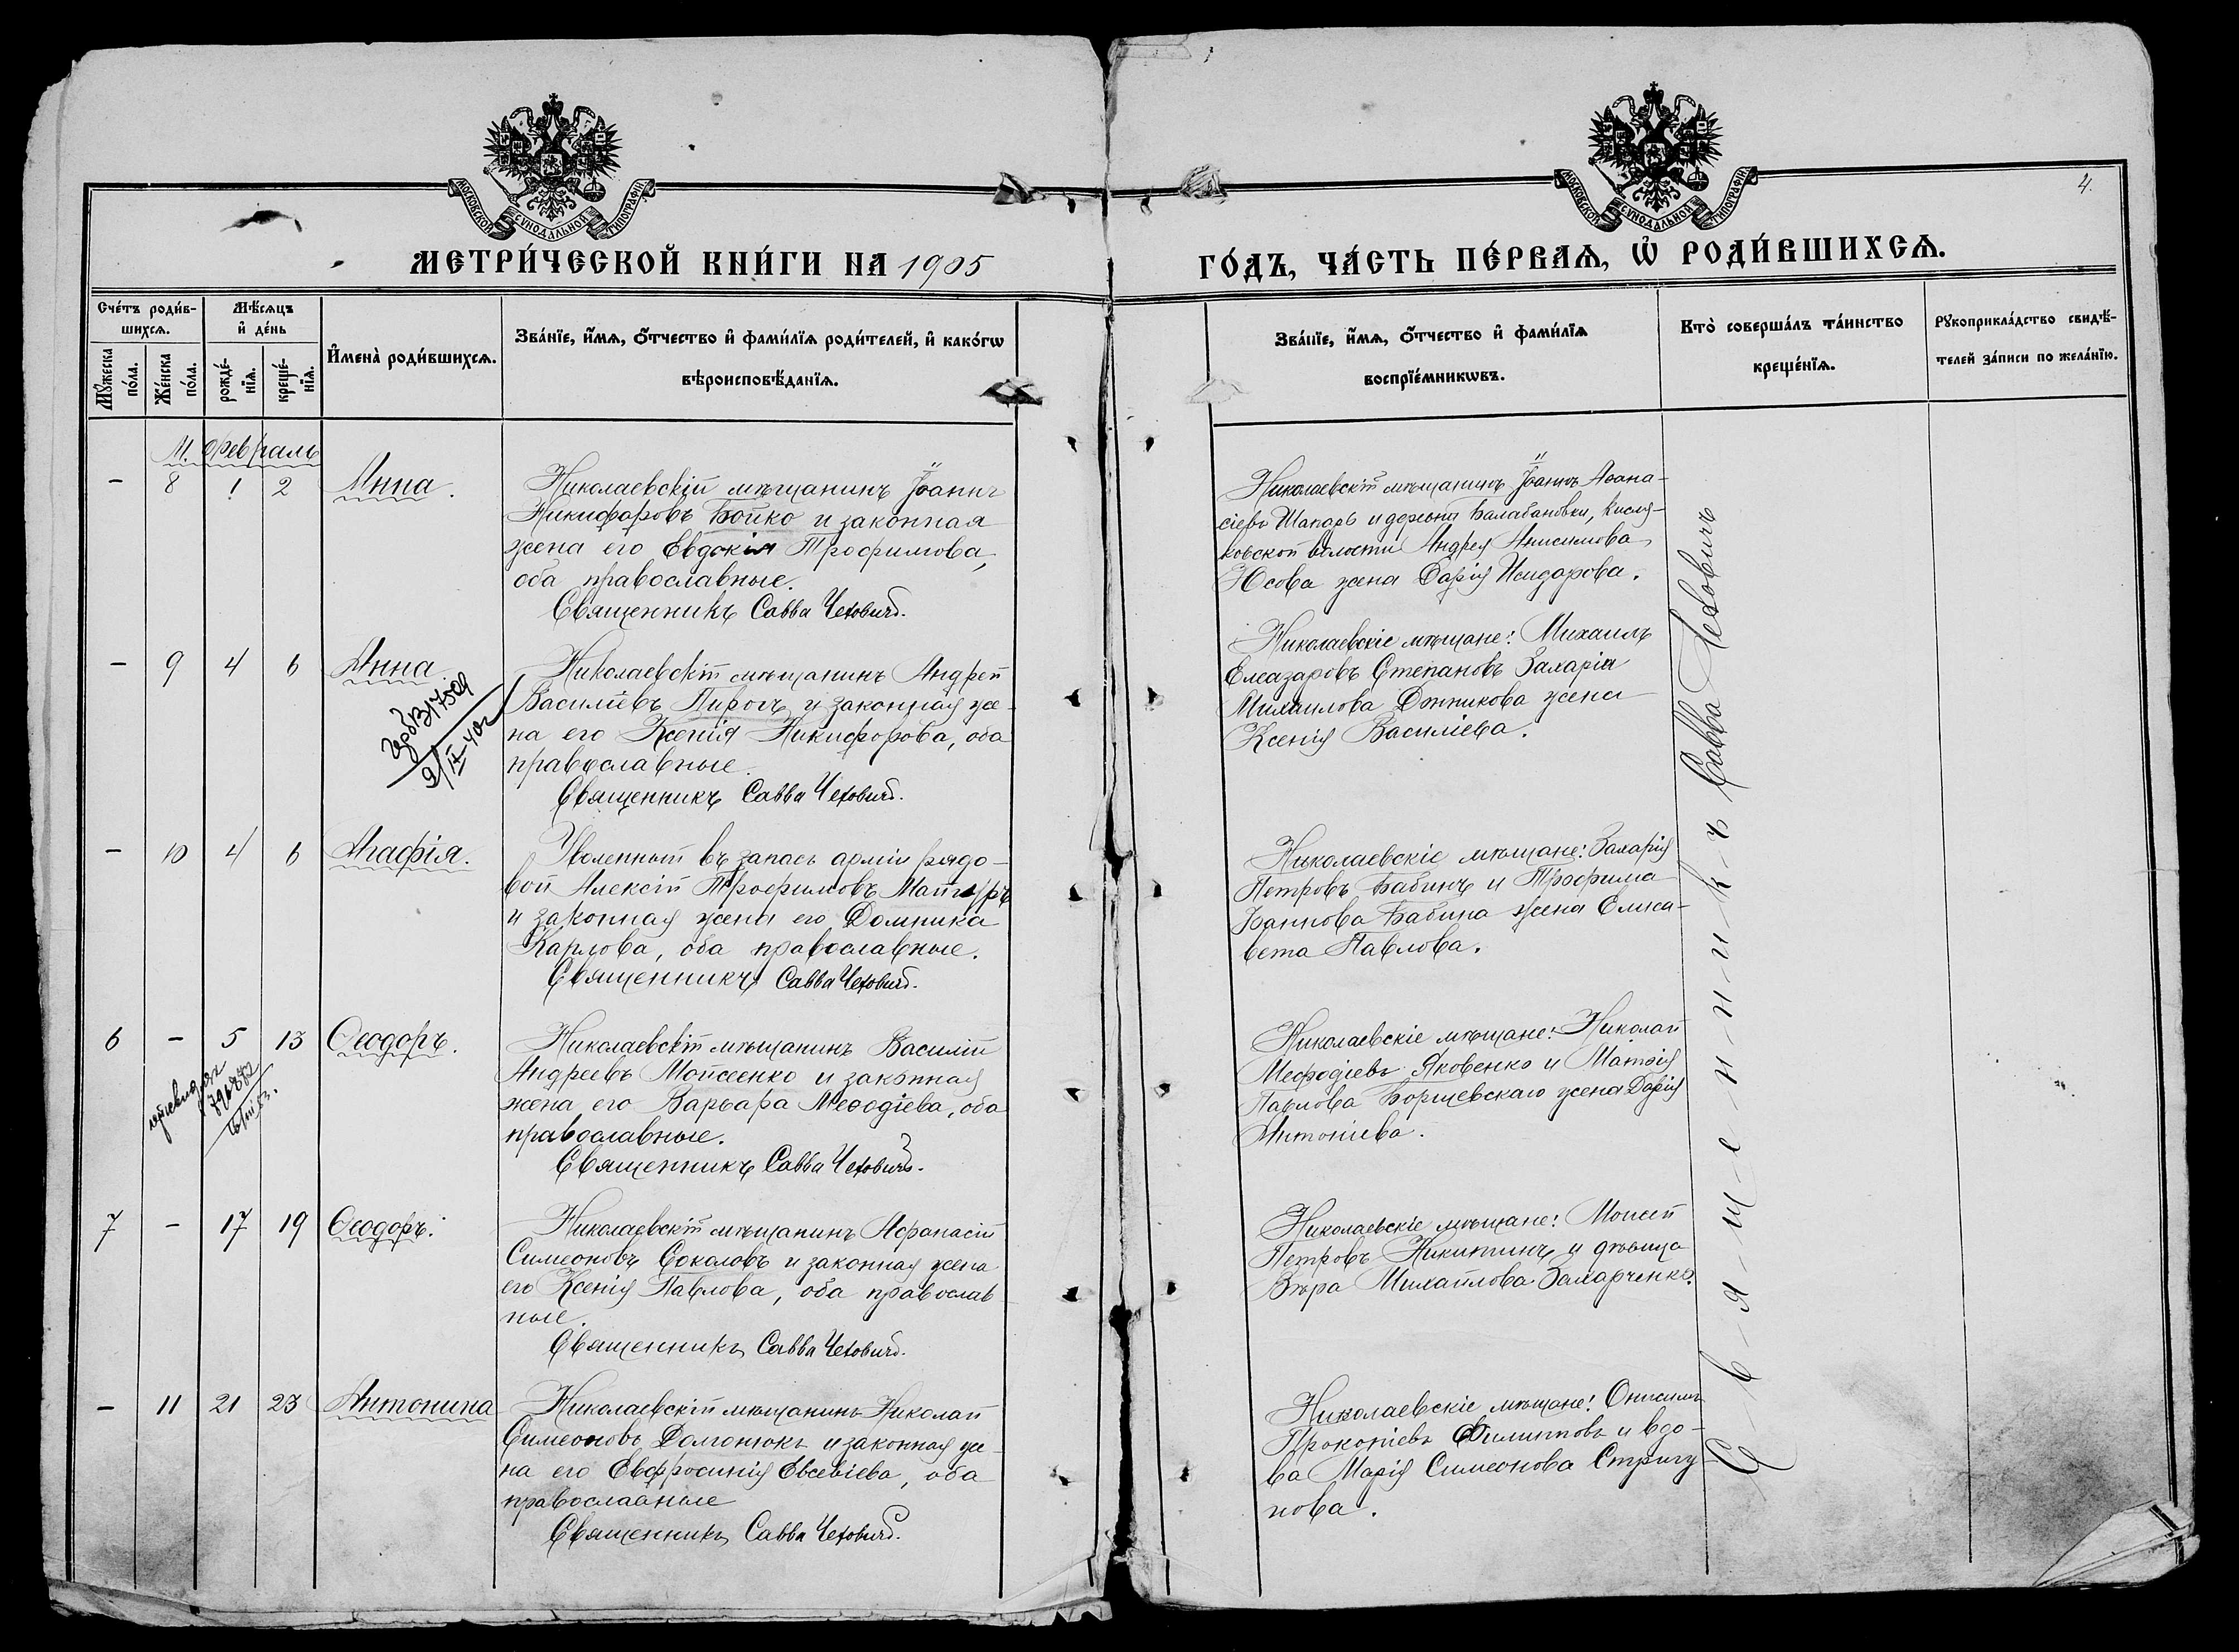 МОСКОВСКОЙ СѴНОДАЛЬНОЙ ТИПОГРАФІИ
МОСКОВСКОЙ СѴНОДАЛЬНОЙ ТИПОГРАФІИ
4.
МЕТРИ́ЧЕСКОЙ КНИ́ГИ НА 1905
ГО́ДЪ, ЧА́СТЬ ПЕ́РВАѦ, Ѽ РОДИ́ВШИХСѦ.
Сче́тъ роди́в-
шихсѧ.
Мѣ́сѧцъ
и҆ де́нь
Мꙋ́жеска
по́ла.
Же́нска
по́ла.
рожде́-
нїѧ.
креще́-
нїѧ.
И҆мена̀ роди́вшихсѧ.
Зва́нїе, и҆́мѧ, ѻ҆́тчество и҆ фами́лїѧ роди́телей, и҆ како́гѡ
вѣроисповѣ́данїѧ.
Зва́нїе, и҆́мѧ, ѻ҆́тчество и҆ фами́лїѧ
воспрїе́мникѡвъ.
Кто̀ соверша́лъ та́инство
креще́нїѧ.
Рꙋкоприкла́дство свидѣ́-
телей за́писи по жела́нїю.
М. Февраль
— 8 1 2 Анна.
Николаевскій мѣщанинъ Іоаннъ
Никифоровъ Бойко и законная
жена его Евдокія Трофимова,
оба православные.
Священникъ Савва Чехович.
Николаевскій мѣщанинъ Іоаннъ Аѳана-
сіевъ Шапарь и деревни Балабановки, Кисля-
ковской волости Андрея Анисимова
Юсова жена Дарія Исидорова.
— 9 4 6 Анна
2/IX-40г
Николаевскій мѣщанинъ Андрей
Василіевъ Пирогъ и законная же-
на его Ксенія Никифорова, оба
православные.
Священникъ Савва Чехович.
Николаевскіе мѣщане: Михаилъ
Елеазаровъ Степановъ Захарія
Михаилова жена
Ксенія Василіева.
— 10 4 6 Агафія.
Уволенный въ запасъ арміи рядо-
вой Алексій Трофимовъ
и законная жена его Домника
Карпова, оба православные.
Священникъ Савва Чехович.
Николаевскіе мѣщане: Захарія
Петровъ Бабинъ и Трофима
Іоаннова Бабина жена Елиса-
вета Павлова.
6 — 5 13 Ѳеодоръ.
Николаевскій мѣщанинъ Василій
Андреевъ Мойсеенко и законная
жена его Варвара Меѳодіева, оба
православные.
Священникъ Савва Чехович.
Николаевскіе мѣщане: Николай
Мефодіевъ Яковенко и Матѳія
Павлова Борщевскаго жена Дарія
Антоніева.
7 — 17 19 Ѳеодоръ.
Николаевскій мѣщанинъ Афанасій
Симеоновъ Соколовъ и законная жена
его Ксенія Павлова, оба православ
ные.
Священникъ Савва Чехович.
Николаевскіе мѣщане: Моисей
Петровъ Никитинъ и дѣвица
Вѣра Михайлова Захарченко.
— 11 21 23 Антонина
Николаевскій мѣщанинъ Николай
Симеоновъ Долгонюкъ и законная же-
на его Евфросинія Евсевіева, оба
православные
Священникъ Савва Чехович.
Николаевскіе мѣщане: Онисимъ
Прокопіевъ Филиповъ и вдо-
ва Марія Симеонова Стригу-
нова.
С-в-я-щ-е-н-н-и-к-ъ Савва Чеховичъ